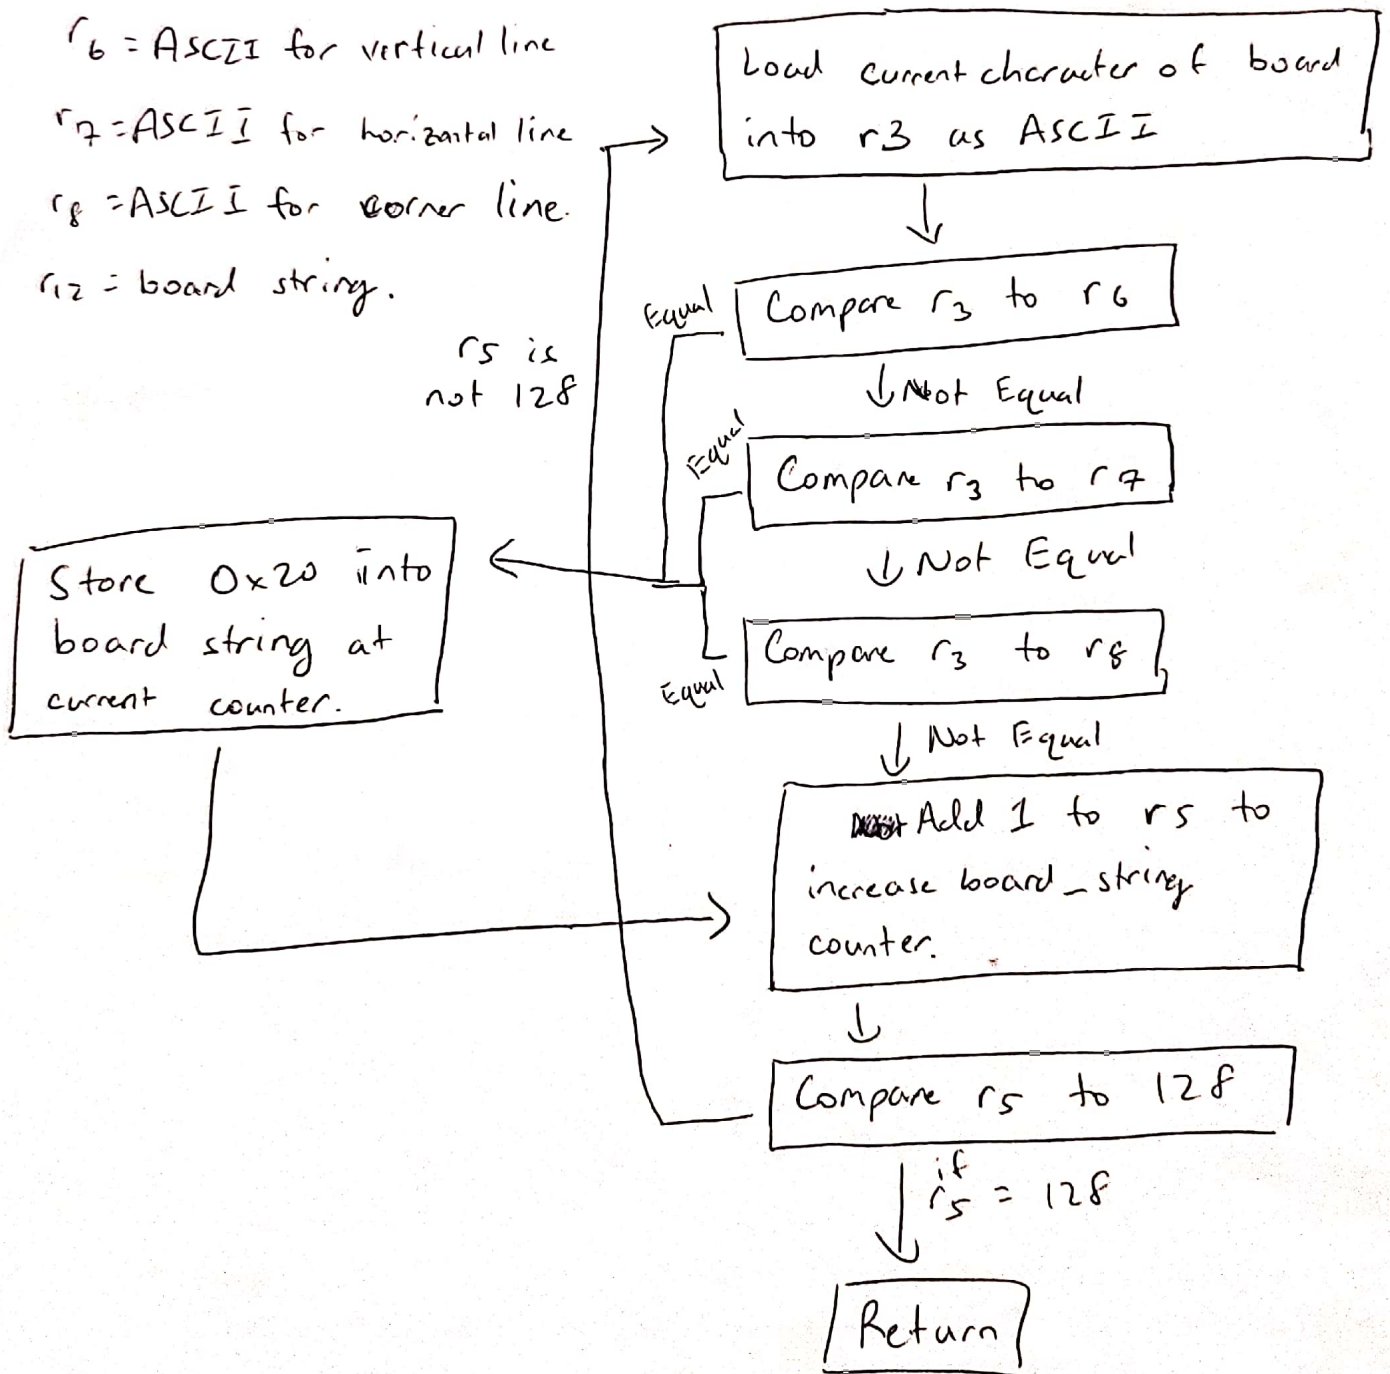 r6 = ASCII for vertical line
r7 = ASCII for horizontal line
r8 = ASCII for corner line.
r12 = board string.
Load current character of board
into r3 as ASCII
Compare r3 to r6
Equal
Not Equal
Compare r3 to r7
Equal
Not Equal
Compare r3 to r8
Equal
Not Equal
rs is
not 128
Store 0x20 into
board string at
current counter.
Add 1 to r5 to
increase board_string
counter.
Compare r5 to 128
if
r5 = 128
Return